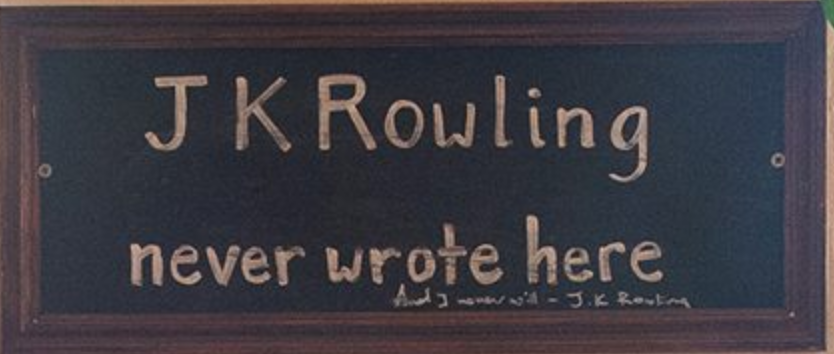 J K Rowling
never wrote here
And I never will - J.K Rowling